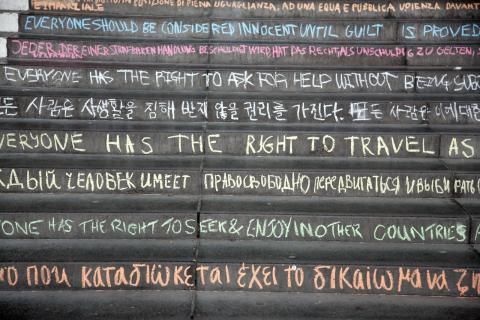 IN POSIZIONE DI PIENA UGUAGLIANZA, AD UNA EQUA E PUBBLICA UDIENZA DAVANT
EVERYONE SHOULD BE CONSIDERED INNOCENT UNTIL GUILT IS PROVED
JEDER, DER EINER STRAFBAREN HANDLUNG BESCHULDIGT WIRD HAT DAS RECHT ALS UNSCHULDIG ZU GELTEN,
EVERYONE HAS THE RIGHT TO ASK FOR HELP WITHOUT BEING
든 사람은 사생활을 침해 받지 않을 권리를 가진다. 모든 사람은
VERYONE HAS THE RIGHT TO TRAVEL AS
ЖДЫЙ ЧЕЛОВЕК ИМЕЕТ ПРАВО СВОБОДНО ПЕРЕДВИГАТЬСЯ И ВЫБИРАТЬ
YONE HAS THE RIGHT TO SEEK & ENJOY IN OTHER COUNTRIES A
νο που καταδιώκεται έχει το δικαίωμα να ζη